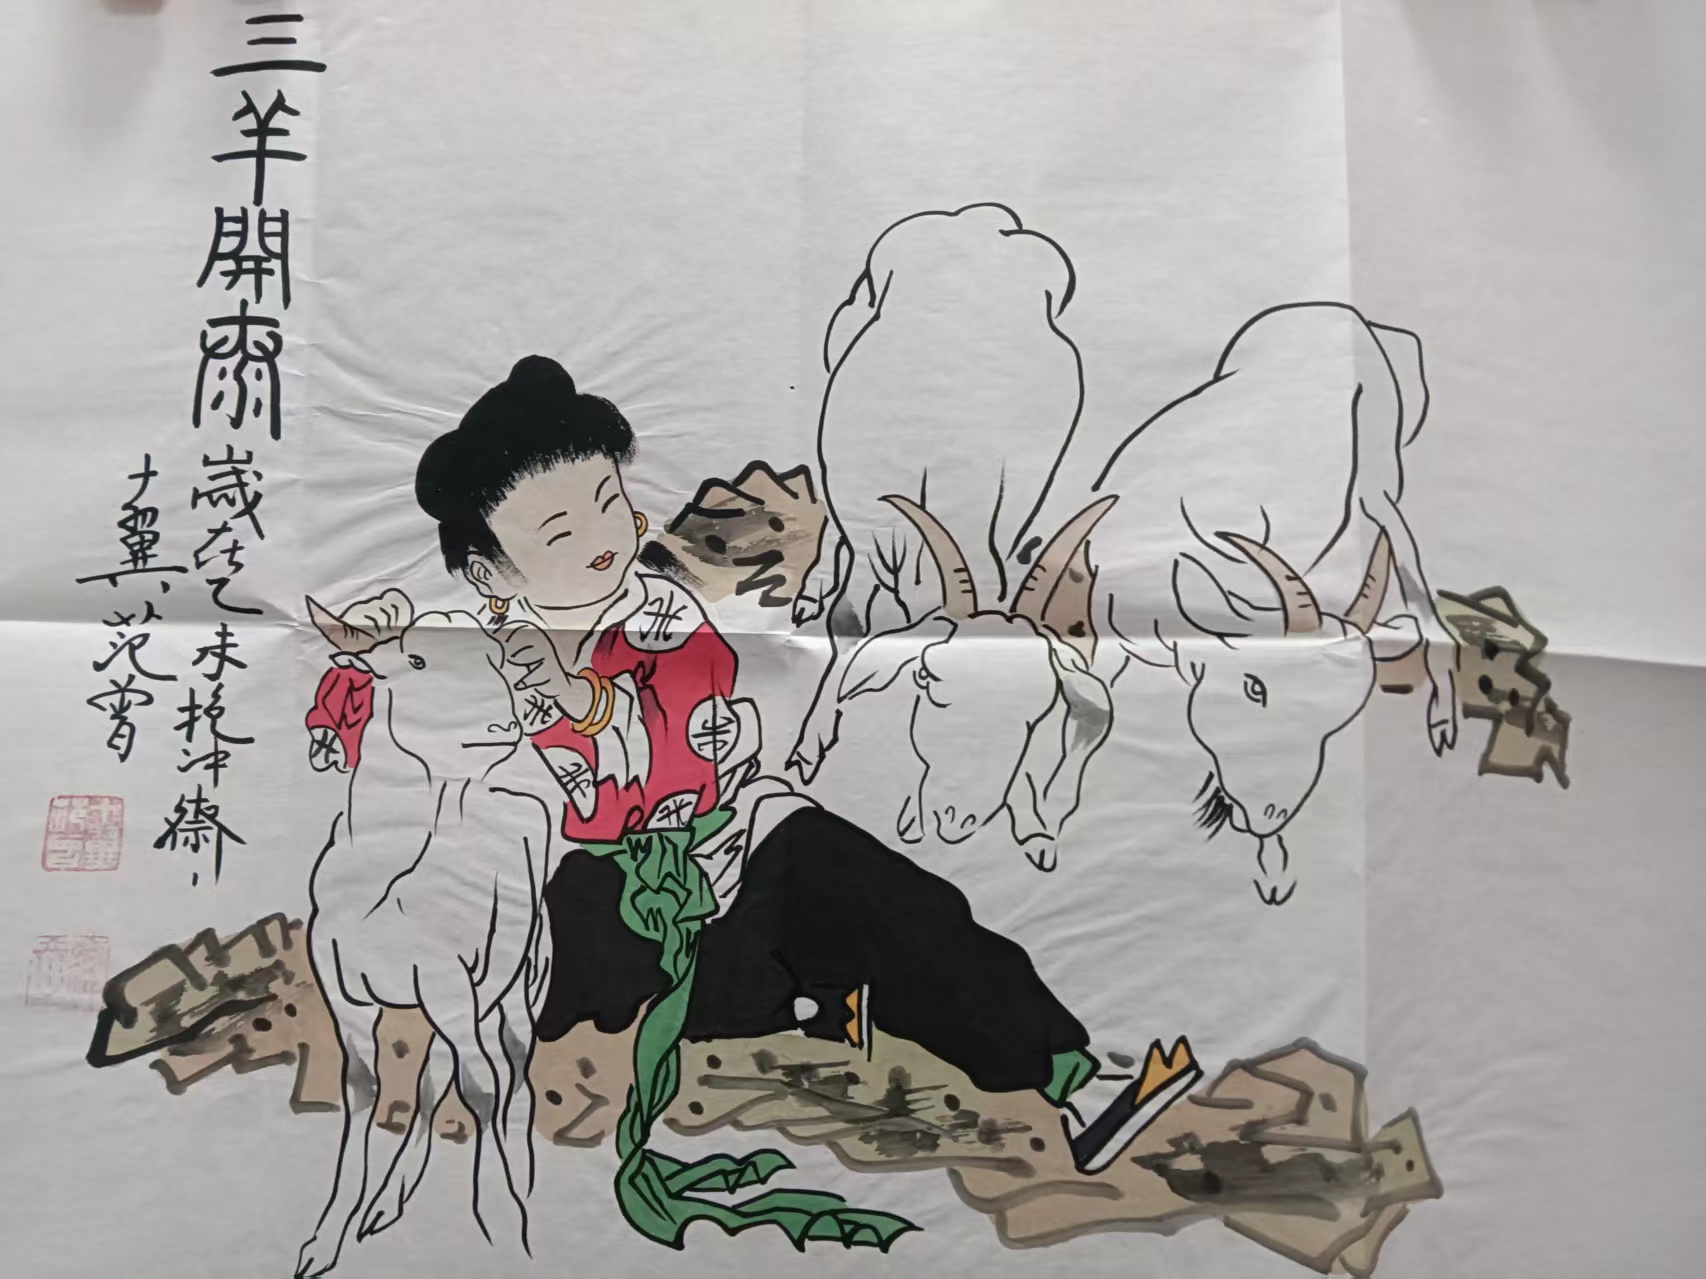 三羊開泰歲在乙未抱冲齋
十翼范曾